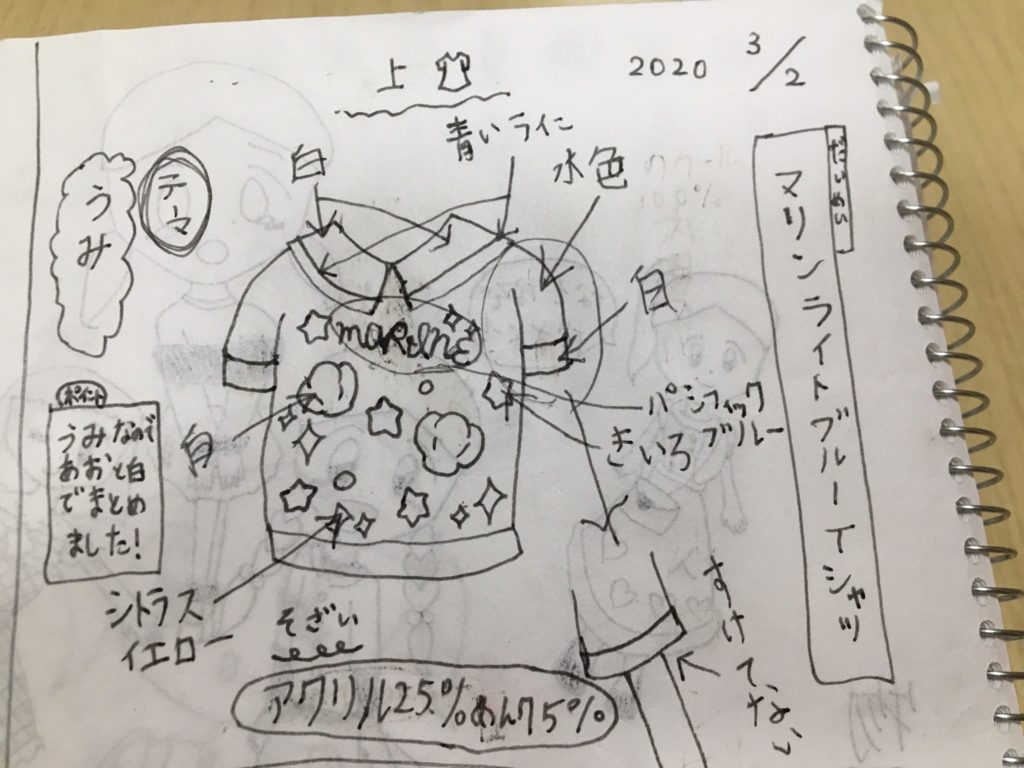 上
2020 3/2
だいめい
マリンライトブルーTシャツ
テーマ
うみ
白
青いライン
水色
白
maRine
パシフィック
ブルー
きいろ
白
ポイント
うみなので
あおと白
でまとめ
ました!
シトラス
イエロー
そざい
アクリル25%めん75%
すけてない